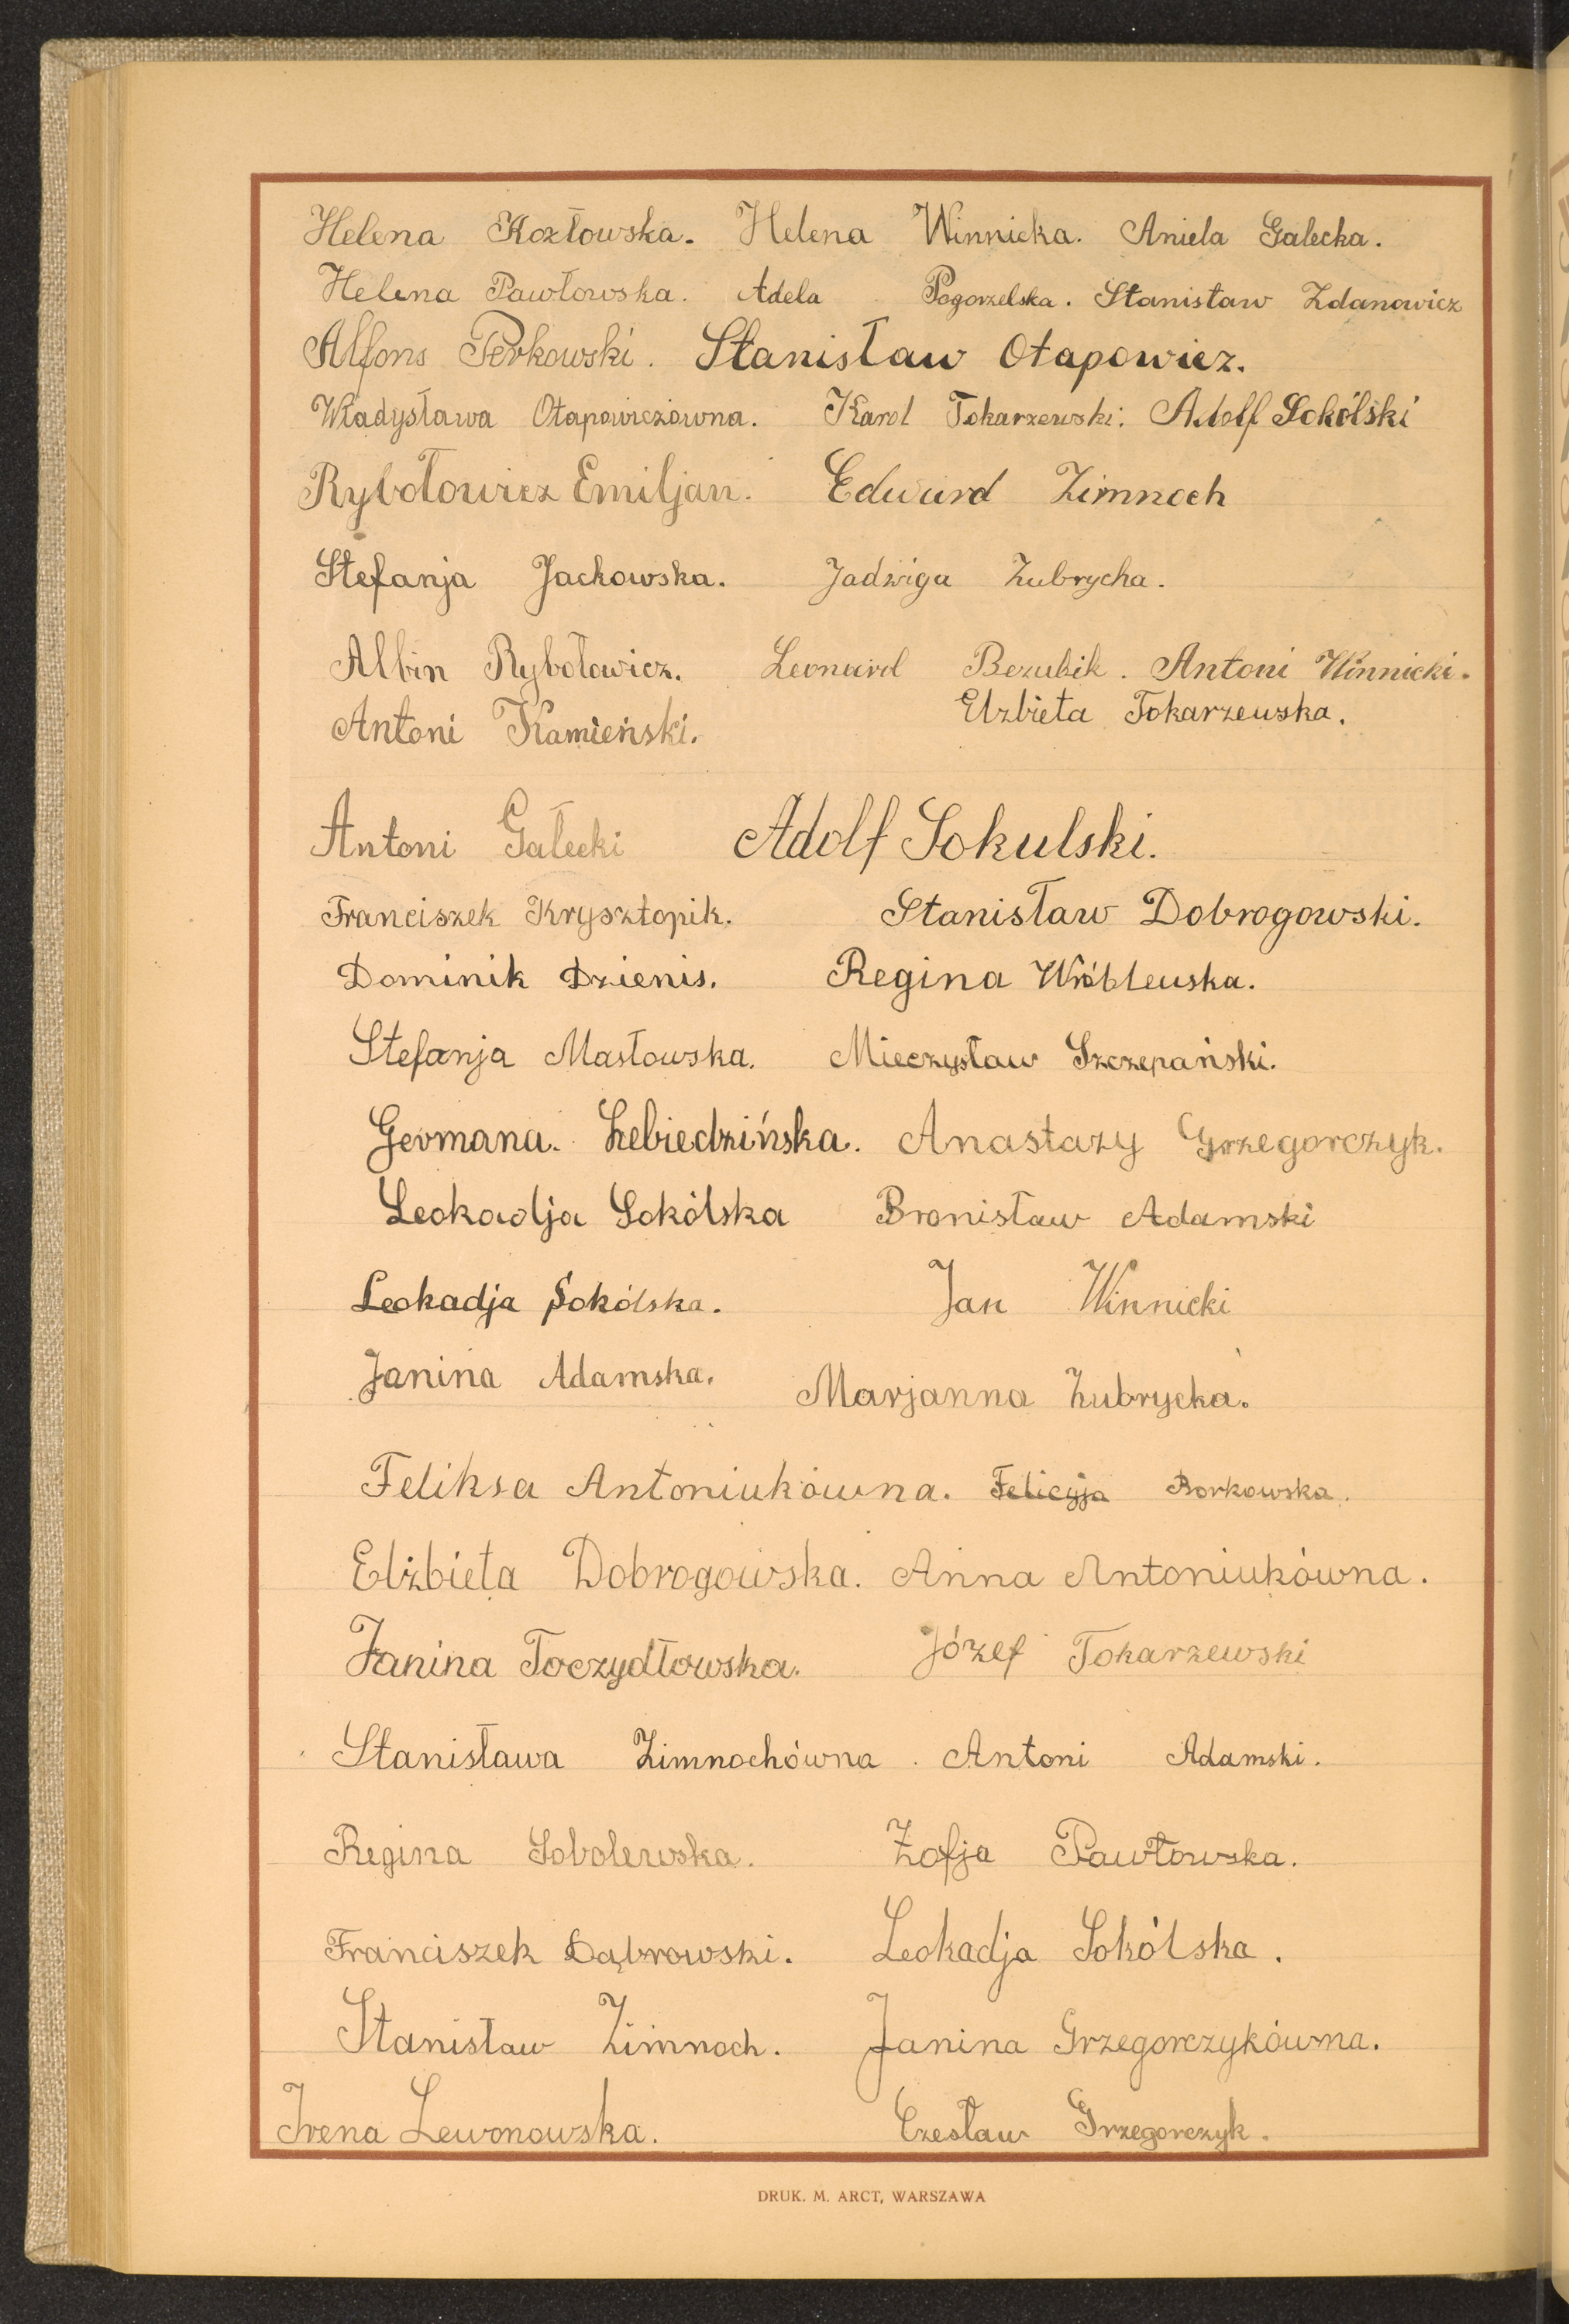 Helena Kozłowska. Helena Winnicka. Aniela Galecka.
Helena Pawłowska. Adela Pogorzelska. Stanisław Zdanowicz
Alfons Perkowski. Stanisław Otapowicz.
Władysława Otapowiczówna. Karol Tokarzewski. Adolf Sokólski
Rybołowicz Emiljan. Edward Zimnoch
Stefanja Jackowska. Jadwiga Zubrycka.
Albin Rybołowicz. Leonard Bezubik. Antoni Winnicki.
Antoni Kamieński. Elzbieta Tokarzewska.
Antoni Gałecki Adolf Sokulski.
Franciszek Krysztopik. Stanisław Dobrogowski.
Dominik Dzienis. Regina Wróblewska.
Stefanja Masłowska. Mieczysław Szczepański.
Germana. Lebiedzińska. Anastazy Grzegorczyk.
Leokadja Sokólska Bronisław Adamski
Leokadja Sokólska. Jan Winnicki
Janina Adamska. Marjanna Zubrycka.
Feliksa Antoniukówna. Felicyja Borkowska.
Elżbieta Dobrogowska. Anna Antoniukówna.
Janina Toczydłowska. Józef Tokarzewski
Stanisława Zimnochówna. Antoni Adamski.
Regina Sobolewska. Zofja Pawłowska.
Franciszek Dąbrowski. Leokadja Sokólska.
Stanisław Zimnoch. Janina Grzegorczykówna.
Irena Lewonowska. Czesław Grzegorczyk.
DRUK. M. ARCT, WARSZAWA